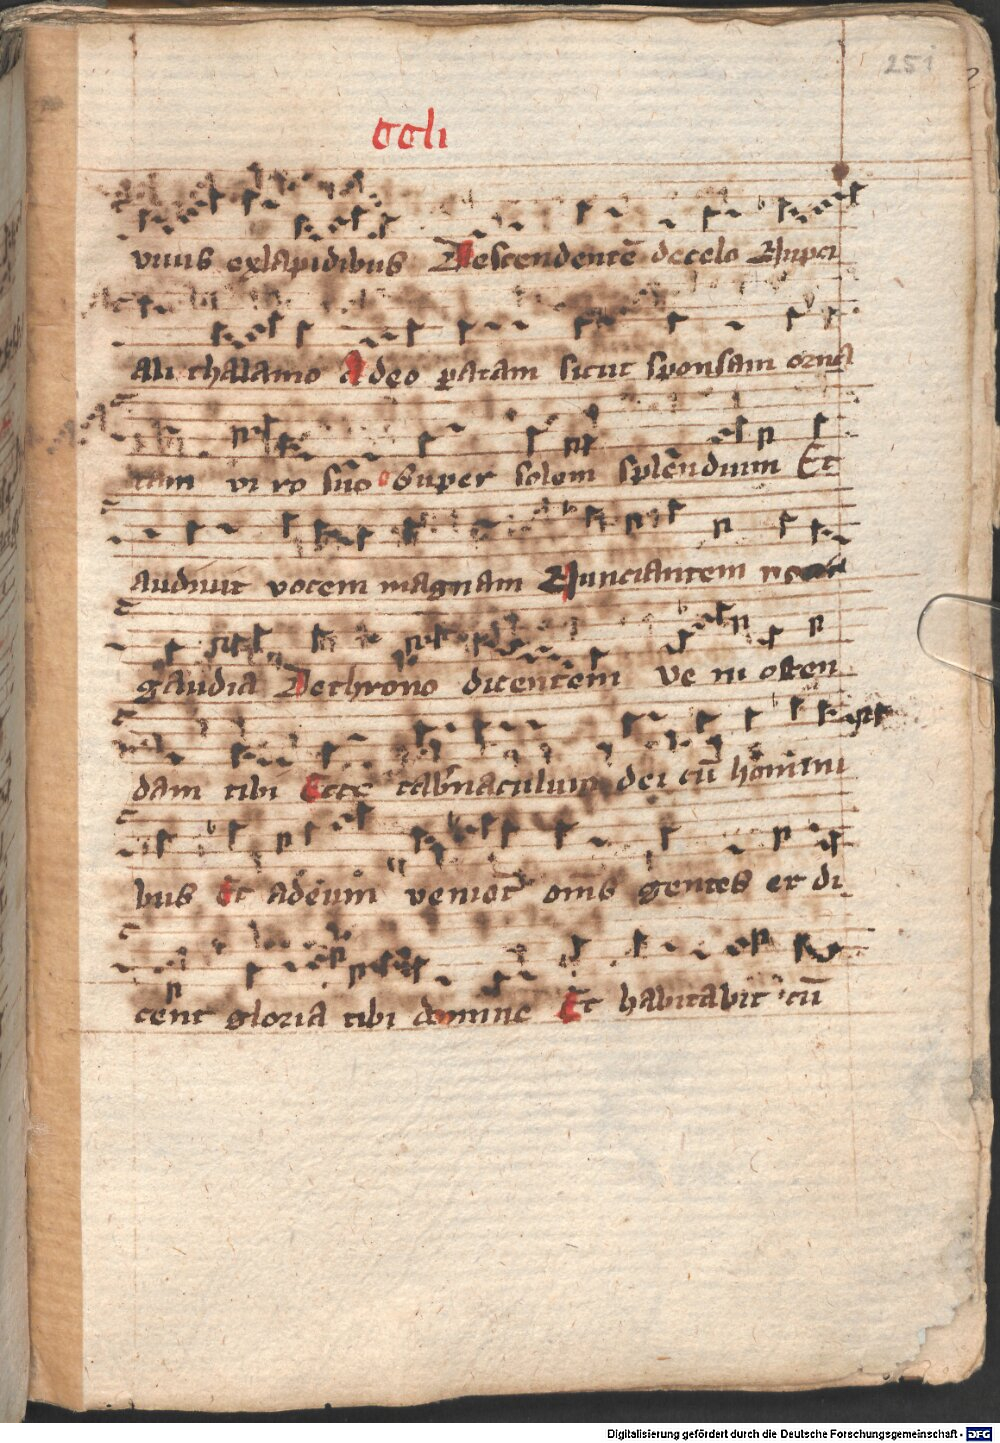 251
ccli
viuis exlapidibus Descendentē decelo Nupci
ali thalamo Adeo paratam sicut sponsam orna
tam vi ro suo Super solem splendium Et
audiuit vocem magnam Nunciantem
gaudia Dethrono dicentem Ve ni osten
dam tibi Ecce tab'naculum dei cū homini
bus Et adeum veniēt om̄s gentes et di
cent gloria tibi domine Et habitabit cū
Digitalisierung gefördert durch die Deutsche Forschungsgemeinschaft - DFG